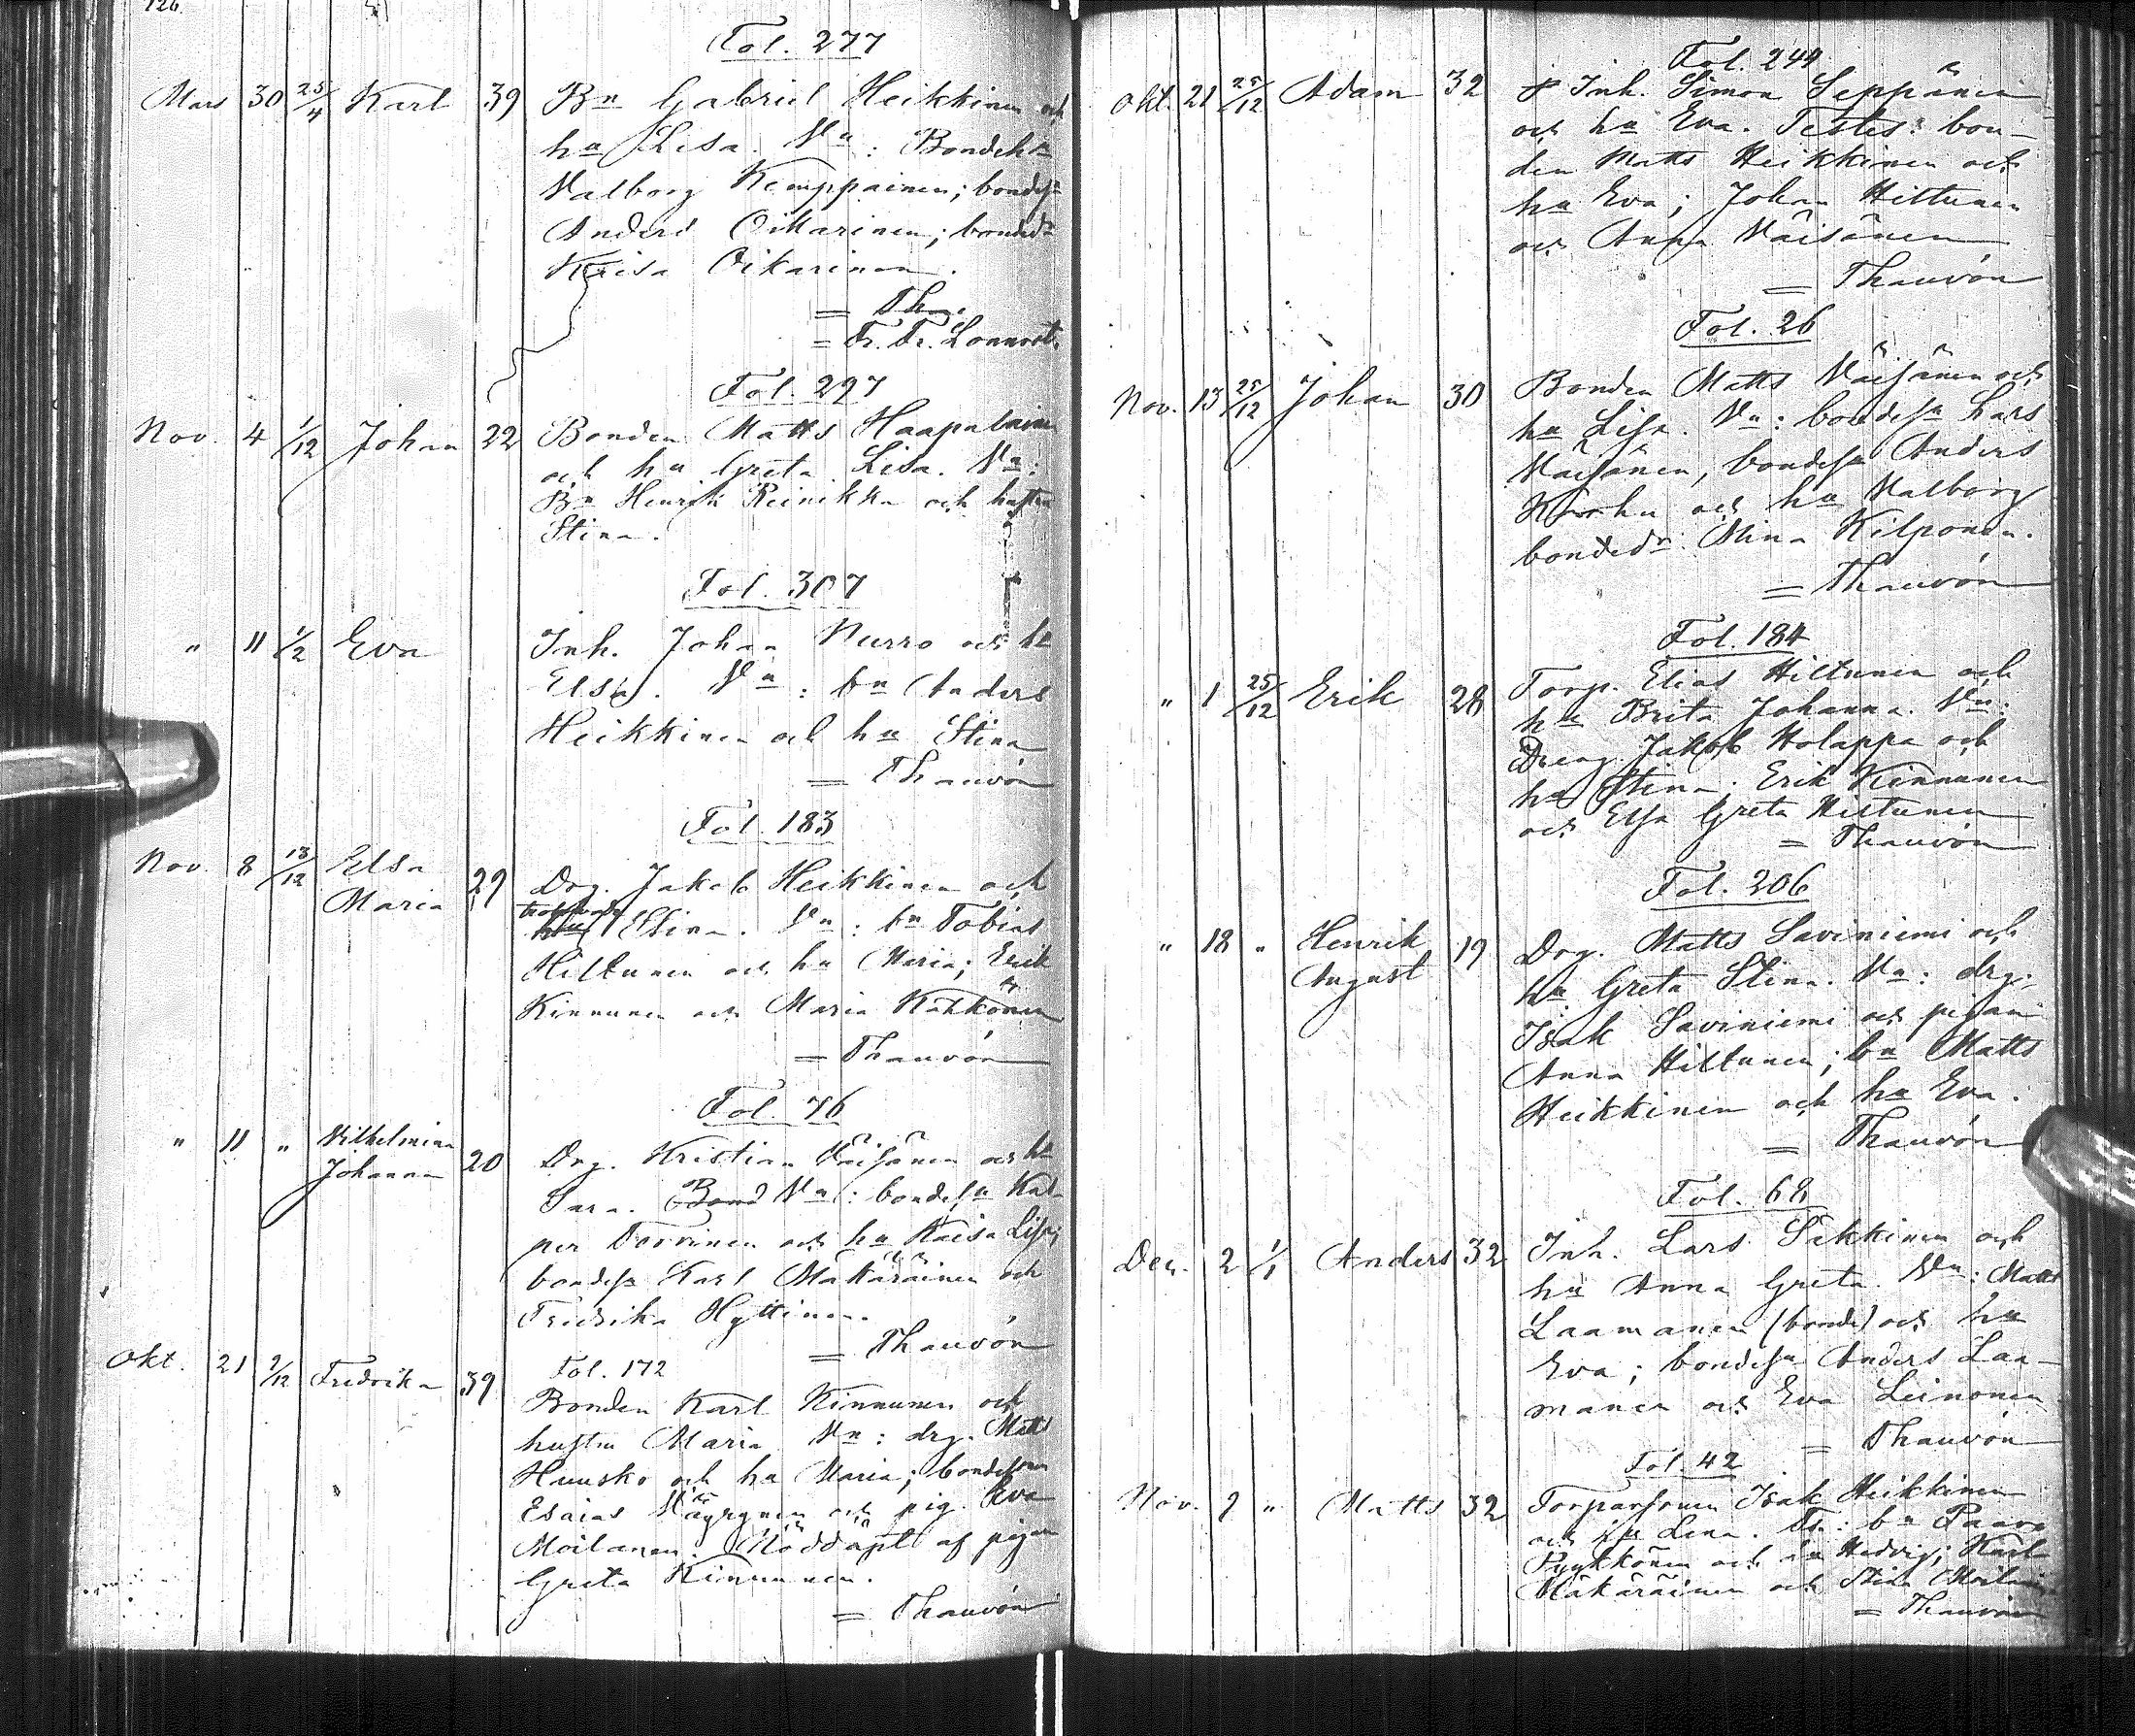 126.
Fol. 277
Mars 30 25/4 Karl 39 Bn Gabriel Heikkinen och
hu Lisa. Vn: Bondeh
Valborg Kemppainen; bondes
Anders Oikarinen; bonded
Kaisa Oikarinen.
= Th.
= Fr. Fr. Lönnrot.
Fol. 297
Nov. 4 1/12 Johan 22 Bonden Matts Haapalainen
och hu Greta Lisa. Vn:
Bn Henrik Reinikka och hustru
Stina.
Fol. 307
" 11 1/2 Eva Inh. Johan Nurro och hu
Elsa. Vn: bn Anders
Heikkinen och hu Stina
= Thauvón
Fol. 183
Nov. 8 13/12 Elsa
Maria 29 Drg. Jakob Heikkinen och
hu Stina. Vn: bn Tobias
Hiltunen och hu Maria; Erik
Kinnunen och Maria Kähkönen
= Thauvón
Fol. 76
" 11 " Vilhelmina
Johanna 20 Drg. Kristian Väisänen och hu
Sara. Bond Vn: bondesn Kas-
per Torvinen och hu Kaisa Lisa;
bondesn Karl Mäkäräinen och
Fredrika Hyttinen.
= Thauvón
Fol. 172
Okt. 21 9/12 Fredrika 39 Bonden Karl Kinnunen och
hustru Maria Vn: drg. Matts
Huusko och hu Maria; bondesonen
Esaias Väyrynen och pig. Eva
Moilanen. Nöddöpt af pigan
Greta Kinnunen.
= Thauvón
Fol. 249
Okt. 21 25/12 Adam 32 Inh. Simon Seppänen
och hu Eva. Testes: bon-
den Matts Heikkinen och
hu Eva; Johan Hiltunen
och Anna Väisänen
= Thauvón
Fol. 26
Nov. 13 25/12 Johan 30 Bonden Matts Väisänen och
hu Lisa. Vn: bondesn Lars
Väisänen, bondesn Anders
Karhu och hu Valborg
bonded Stina Kilponen.
= Thauvón
Fol. 184
" 1 25/12 Erik 28 Torp. Elias Hiltunen och
hu Brita Johanna. Vn:
Dreng. Jakob Holappa och
hu Stina; Erik Kinnunen
och Elsa Greta Hiltunen
= Thauvón
Fol. 206
" 18 " Henrik
August 19 Drg. Matts Saviniemi och
hu Greta Stina. Vn: drg.
Isak Saviniemi och pigan
Anna Hiltunen; bn Matts
Heikkinen och hu Eva.
= Thauvón
Fol. 68
Dec. 2 1/1 Anders 32 Inh. Lars Sikkinen och
hu Anna Greta. Vn: Matts
Laamanen (bonde) och hu
Eva; bondesn Anders Laa-
manen och Eva Leinonen
= Thauvón
Fol. 42
Nov. 9 " Matts 32 Torparsonen Isak Heikkinen
och hu Lena. Ts.: bn Paavo
Pyykkönen och hu Hedvig; Karl
Mäkäräinen och Stina
= Thauvón